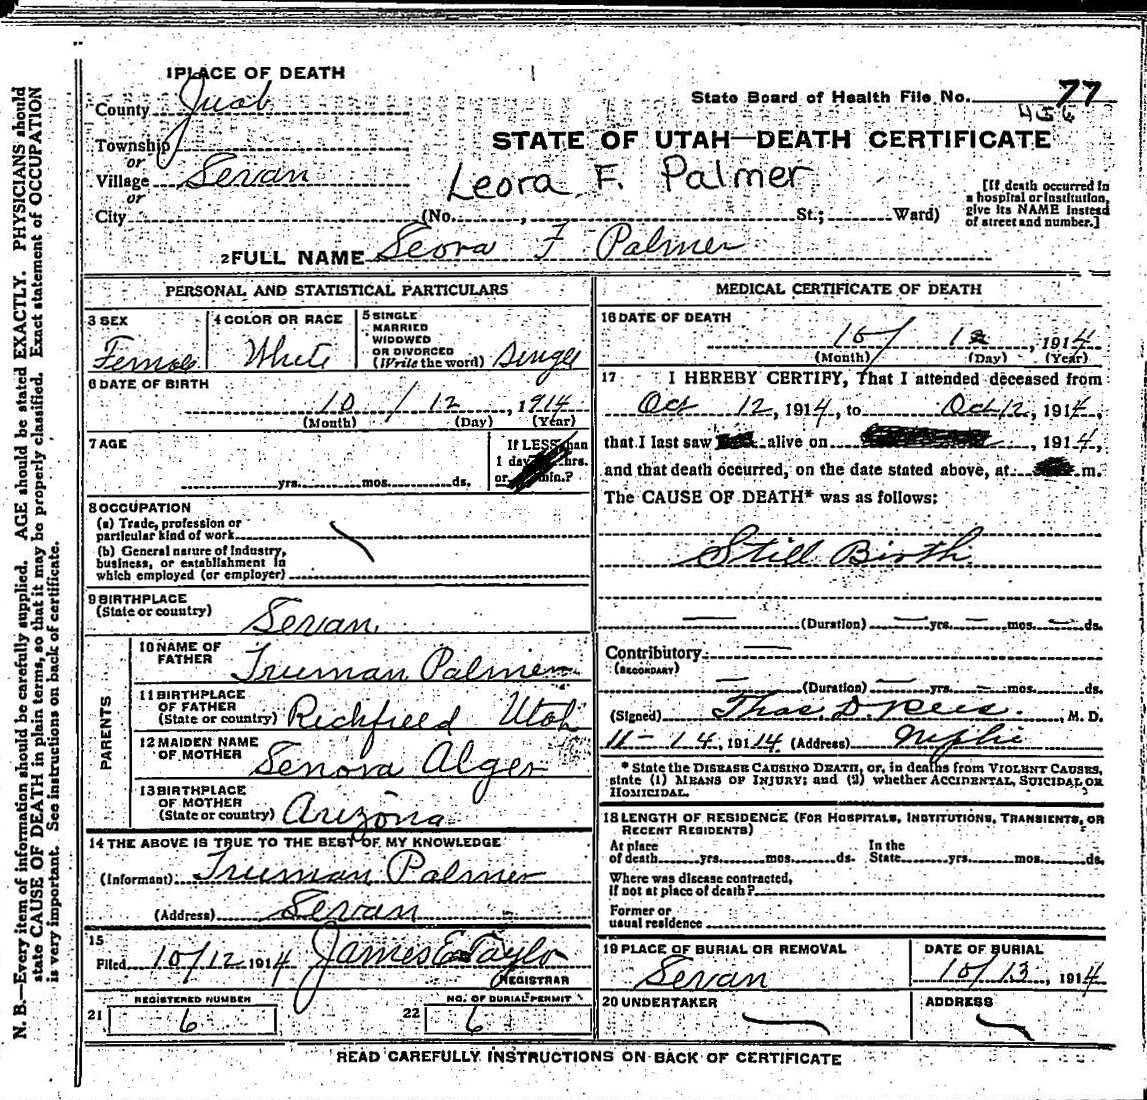 1 PLACE OF DEATH
County Juab
State Board of Health File No. 77
456
Township
or
Village Levan
or
City
STATE OF UTAH—DEATH CERTIFICATE
Leora F. Palmer
(No. , St.; Ward)
[If death occurred in
a hospital or institution,
give its NAME instead
of street and number.]
2 FULL NAME Leora F Palmer
PERSONAL AND STATISTICAL PARTICULARS
3 SEX
Female
4 COLOR OR RACE
White
5 SINGLE
MARRIED
WIDOWED
OR DIVORCED
(Write the word) Single
6 DATE OF BIRTH
10 / 12, 1914
(Month) (Day) (Year)
7 AGE
yrs. mos. ds.
If LESS than
1 day hrs.
or min.?
8 OCCUPATION
(a) Trade, profession or
particular kind of work
(b) General nature of Industry,
business, or establishment in
which employed (or employer)
9 BIRTHPLACE
(State or country)
Levan
PARENTS
10 NAME OF
FATHER Truman Palmer
11 BIRTHPLACE
OF FATHER
(State or country) Richfield Utah
12 MAIDEN NAME
OF MOTHER Lenora Alger
13 BIRTHPLACE
OF MOTHER
(State or country) Arizona
14 THE ABOVE IS TRUE TO THE BEST OF MY KNOWLEDGE
(Informant) Truman Palmer
(Address) Levan
15
Filed 10/12 1914 James E Taylor
REGISTRAR
REGISTERED NUMBER
21 6
NO. OF BURIAL PERMIT
22 6
MEDICAL CERTIFICATE OF DEATH
16 DATE OF DEATH
10 / 12, 1914
(Month) (Day) (Year)
17 I HEREBY CERTIFY, That I attended deceased from
Oct 12, 1914, to Oct 12, 1914,
that I last saw alive on , 1914,
and that death occurred, on the date stated above, at m.
The CAUSE OF DEATH* was as follows:
Still Birth
(Duration) yrs. mos. ds.
Contributory
(SECONDARY)
(Duration) yrs. mos. ds.
(Signed) Thos. D. Rees., M. D.
11-14, 19114 (Address) Nephi
* State the DISEASE CAUSING DEATH, or, in deaths from VIOLENT CAUSES,
state (1) MEANS OF INJURY; and (2) whether ACCIDENTAL, SUICIDAL OR
HOMICIDAL.
18 LENGTH OF RESIDENCE (FOR HOSPITALS, INSTITUTIONS, TRANSIENTS, OR
RECENT RESIDENTS)
At place In the
of death yrs. mos. ds. State yrs. mos. ds.
Where was disease contracted,
if not at place of death?
Former or
usual residence
19 PLACE OF BURIAL OR REMOVAL
Levan
DATE OF BURIAL
10/13, 1914
20 UNDERTAKER
ADDRESS
READ CAREFULLY INSTRUCTIONS ON BACK OF CERTIFICATE
N. B.—Every item of information should be carefully supplied. AGE should be stated EXACTLY. PHYSICIANS should
state CAUSE OF DEATH in plain terms, so that it may be properly classified. Exact statement of OCCUPATION
is very important. See instructions on back of certificate.